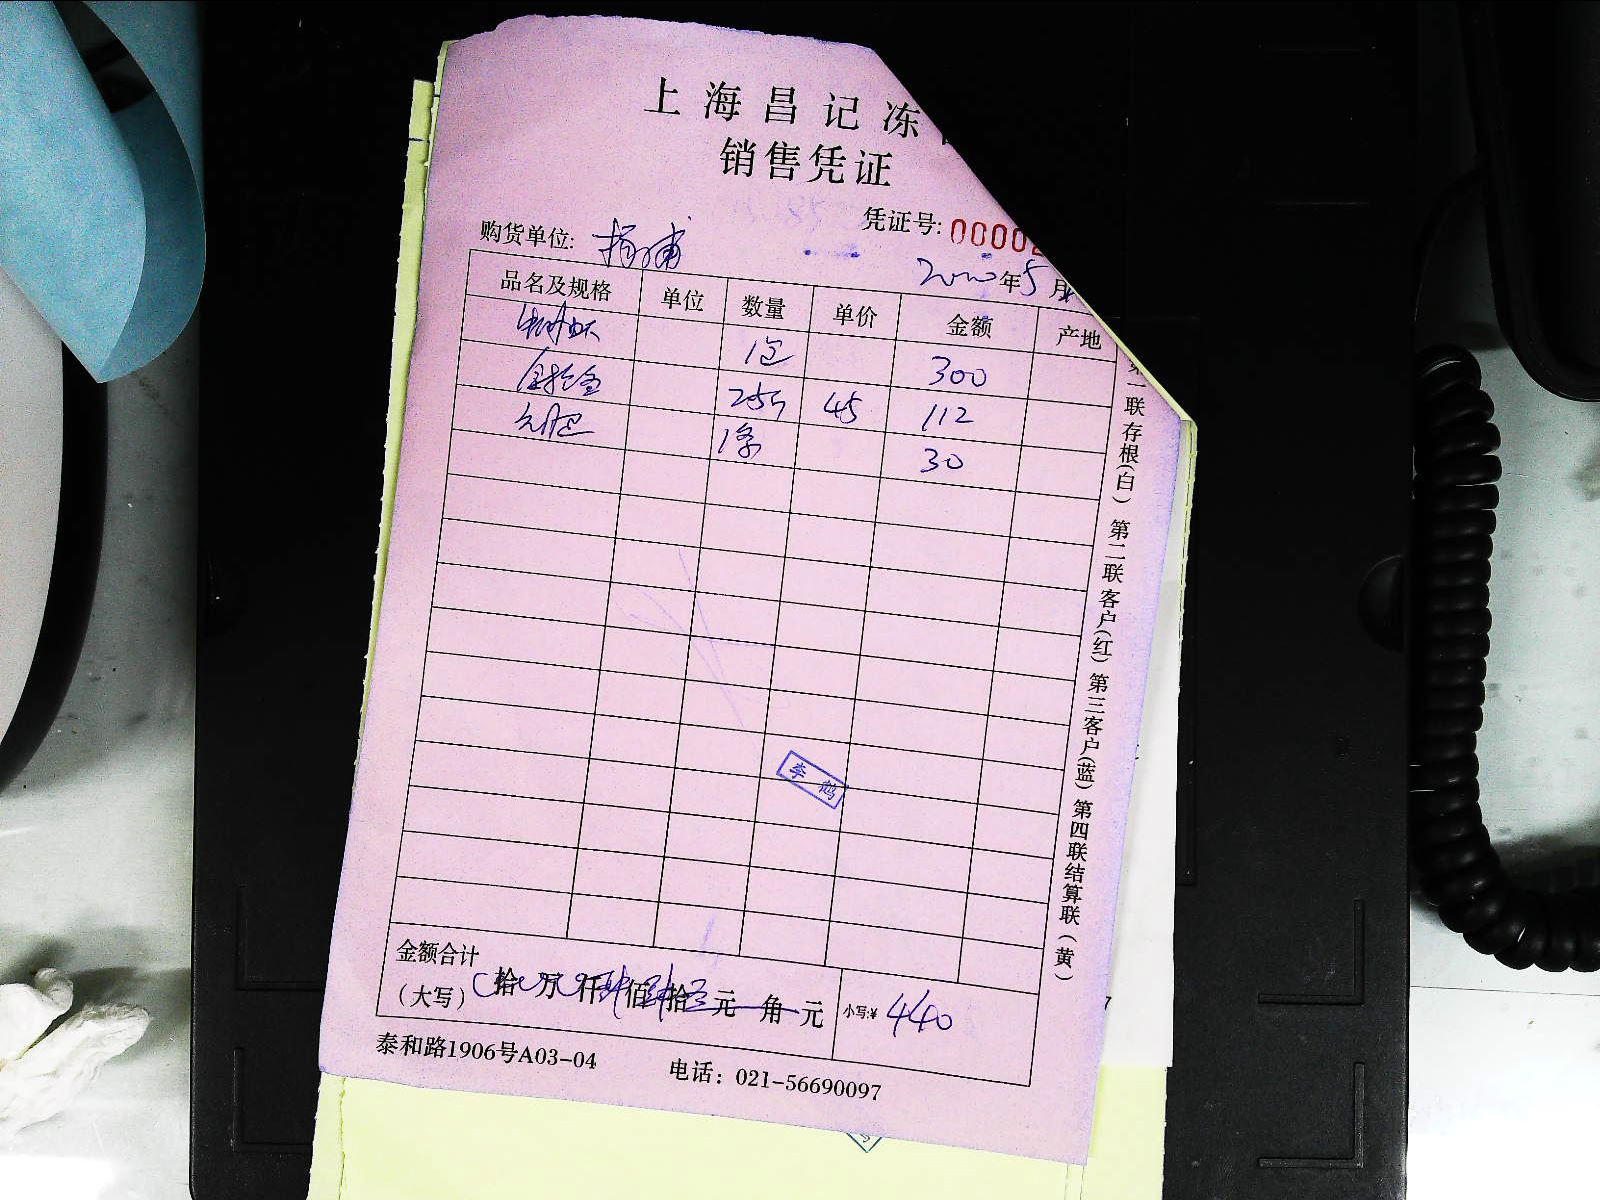 上海昌记冻
销售凭证
凭证号: 0000
购货单位: 杨浦
2020年5月
品名及规格 单位 数量 单价 金额 产地
1包 300
255 45 112
1条 30
第一联存根(白) 第二联客户(红) 第三客户(蓝) 第四联结算联(黄)
李鹤
金额合计
(大写) 拾 万 仟 肆 佰 肆 拾 元 角 元 小写:¥ 440
泰和路1906号A03-04 电话: 021-56690097